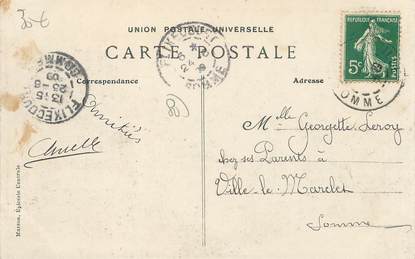 30 €
UNION POSTALE UNIVERSELLE
CARTE POSTALE
Correspondance
Adresse
REPUBLIQUE FRANÇAISE
5c
POSTES
FLIXECOURT
13-15
23-8
09
SOMME
SOMME
SOMME
Amitiés
Mlle Georgette Leroy
chez ses Parents à
Ville-le-Marclet
Somme
Masson, Épicerie Centrale